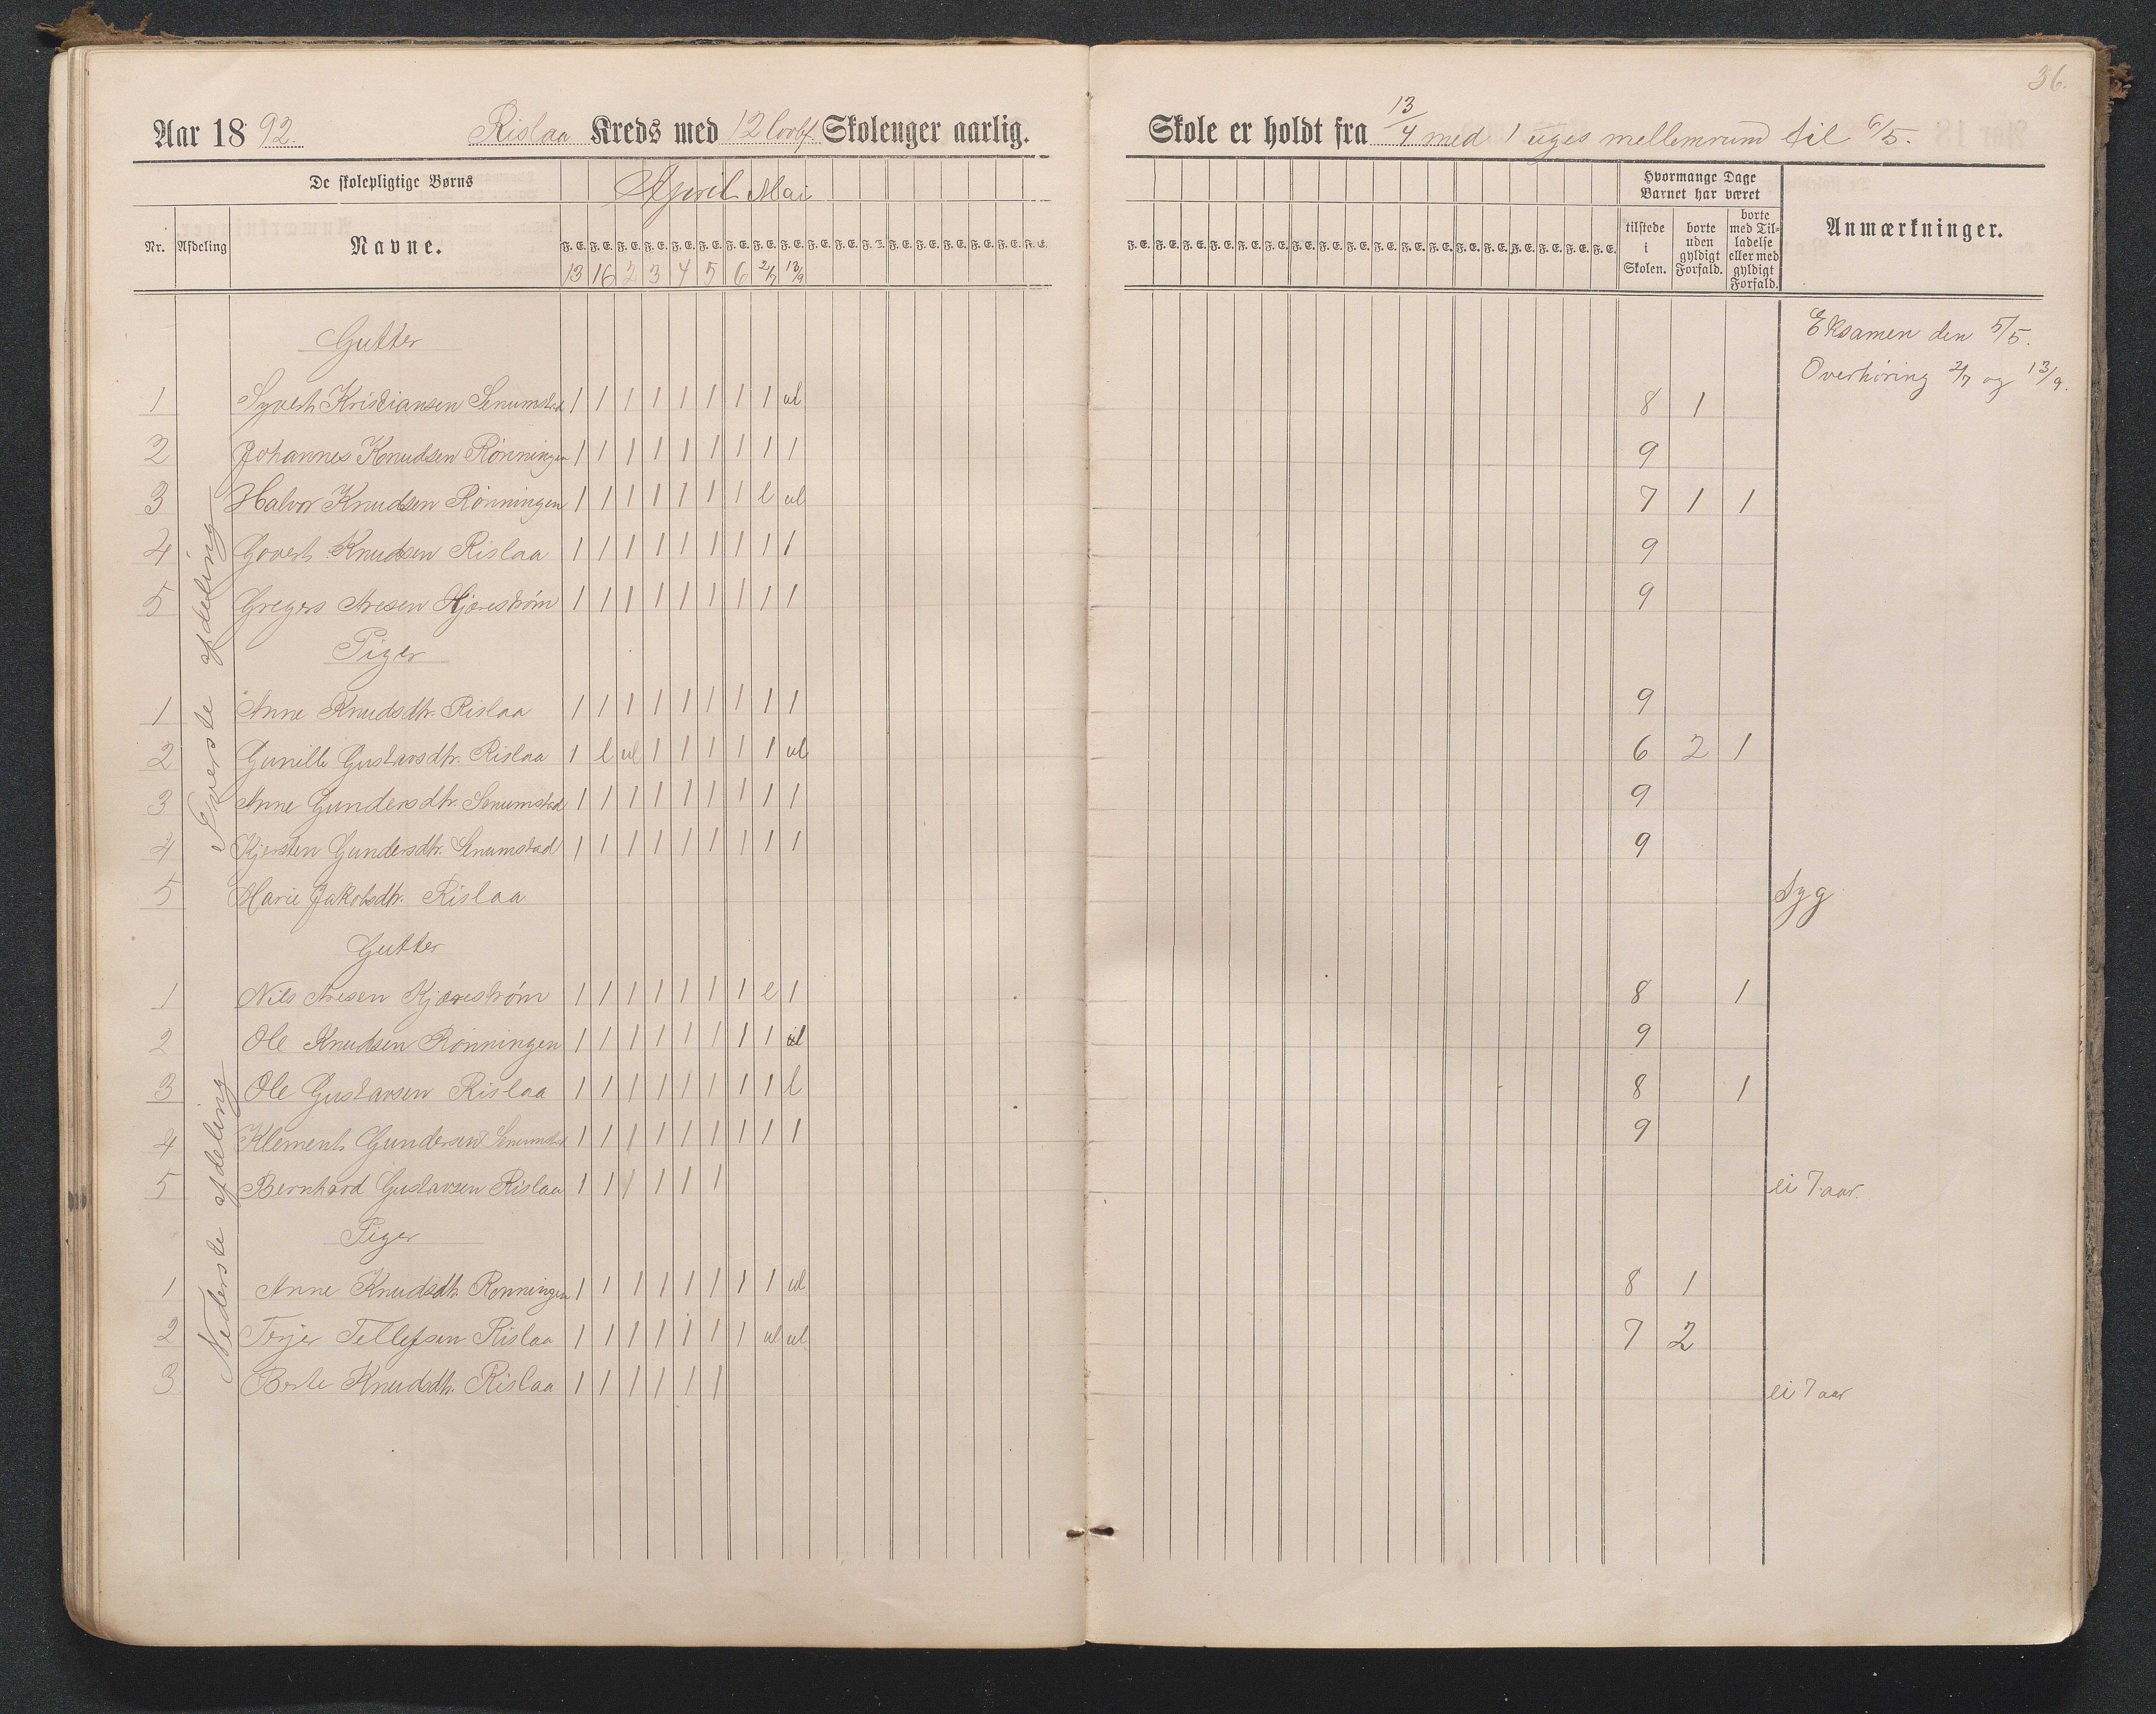 36.
Aar 1892. Rislaa Kreds med 12 lovbf. Skolenger aarlig.
Skole er holdt fra 13/4 med 1 uges mellemrum til 6/5.
De skolepligtige Børns April Mai
Nr. Afdeling Navne. F. E. F. E. F. E. F. E. F. E. F. E. F. E. F. E. F. E. F. E. F. E. F. E. F. E. F. E. F. E. F. E. F. E. F. E.
13 16 2 3 4 5 6 2/7 13/9
Hvormange Dage Barnet har været
tilstede i Skolen.
borte uden gyldigt Forfald.
borte med Tilladelse eller med gyldigt Forfald.
Anmærkninger.
Eksamen den 5/5.
Overhøring 2/7 og 13/9.
Øverste afdeling
Gutter
1 Syvert Kristiansen Senumstad 1 1 1 1 1 1 1 1 ul 8 1
2 Johannes Knudsen Rønningen 1 1 1 1 1 1 1 1 1 9
3 Halvor Knudsen Rønningen 1 1 1 1 1 1 1 l ul 7 1 1
4 Govert Knudsen Rislaa 1 1 1 1 1 1 1 1 1 9
5 Gregers Aresen Kjærestrøm 1 1 1 1 1 1 1 1 1 9
Piger
1 Anne Knudsdtr. Rislaa 1 1 1 1 1 1 1 1 1 9
2 Gunille Gustavsdtr. Rislaa 1 l ul 1 1 1 1 1 ul 6 2 1
3 Anne Gundersdtr. Senumstad 1 1 1 1 1 1 1 1 1 9
4 Kjersten Gundersdtr. Senumstad 1 1 1 1 1 1 1 1 1 9
5 Marie Jakobsdtr. Rislaa syg
Nederste afdeling
Gutter
1 Nils Aresen Kjærestrøm 1 1 1 1 1 1 1 l 1 8 1
2 Ole Knudsen Rønningen 1 1 1 1 1 1 1 1 9
3 Ole Gustavsen Rislaa 1 1 1 1 1 1 1 1 l 8 1
4 Klement Gundersen Senumstad 1 1 1 1 1 1 1 1 1 9
5 Bernhard Gustavsen Rislaa 1 1 1 1 1 1 ei 7 aar.
Piger
1 Anne Knudsdtr. Rønningen 1 1 1 1 1 1 1 1 ul 8 1
2 Terjer Tellefsen Rislaa 1 1 1 1 1 1 1 ul ul 7 2
3 Berte Knudsdtr. Rislaa 1 1 1 1 1 1 ei 7 aar